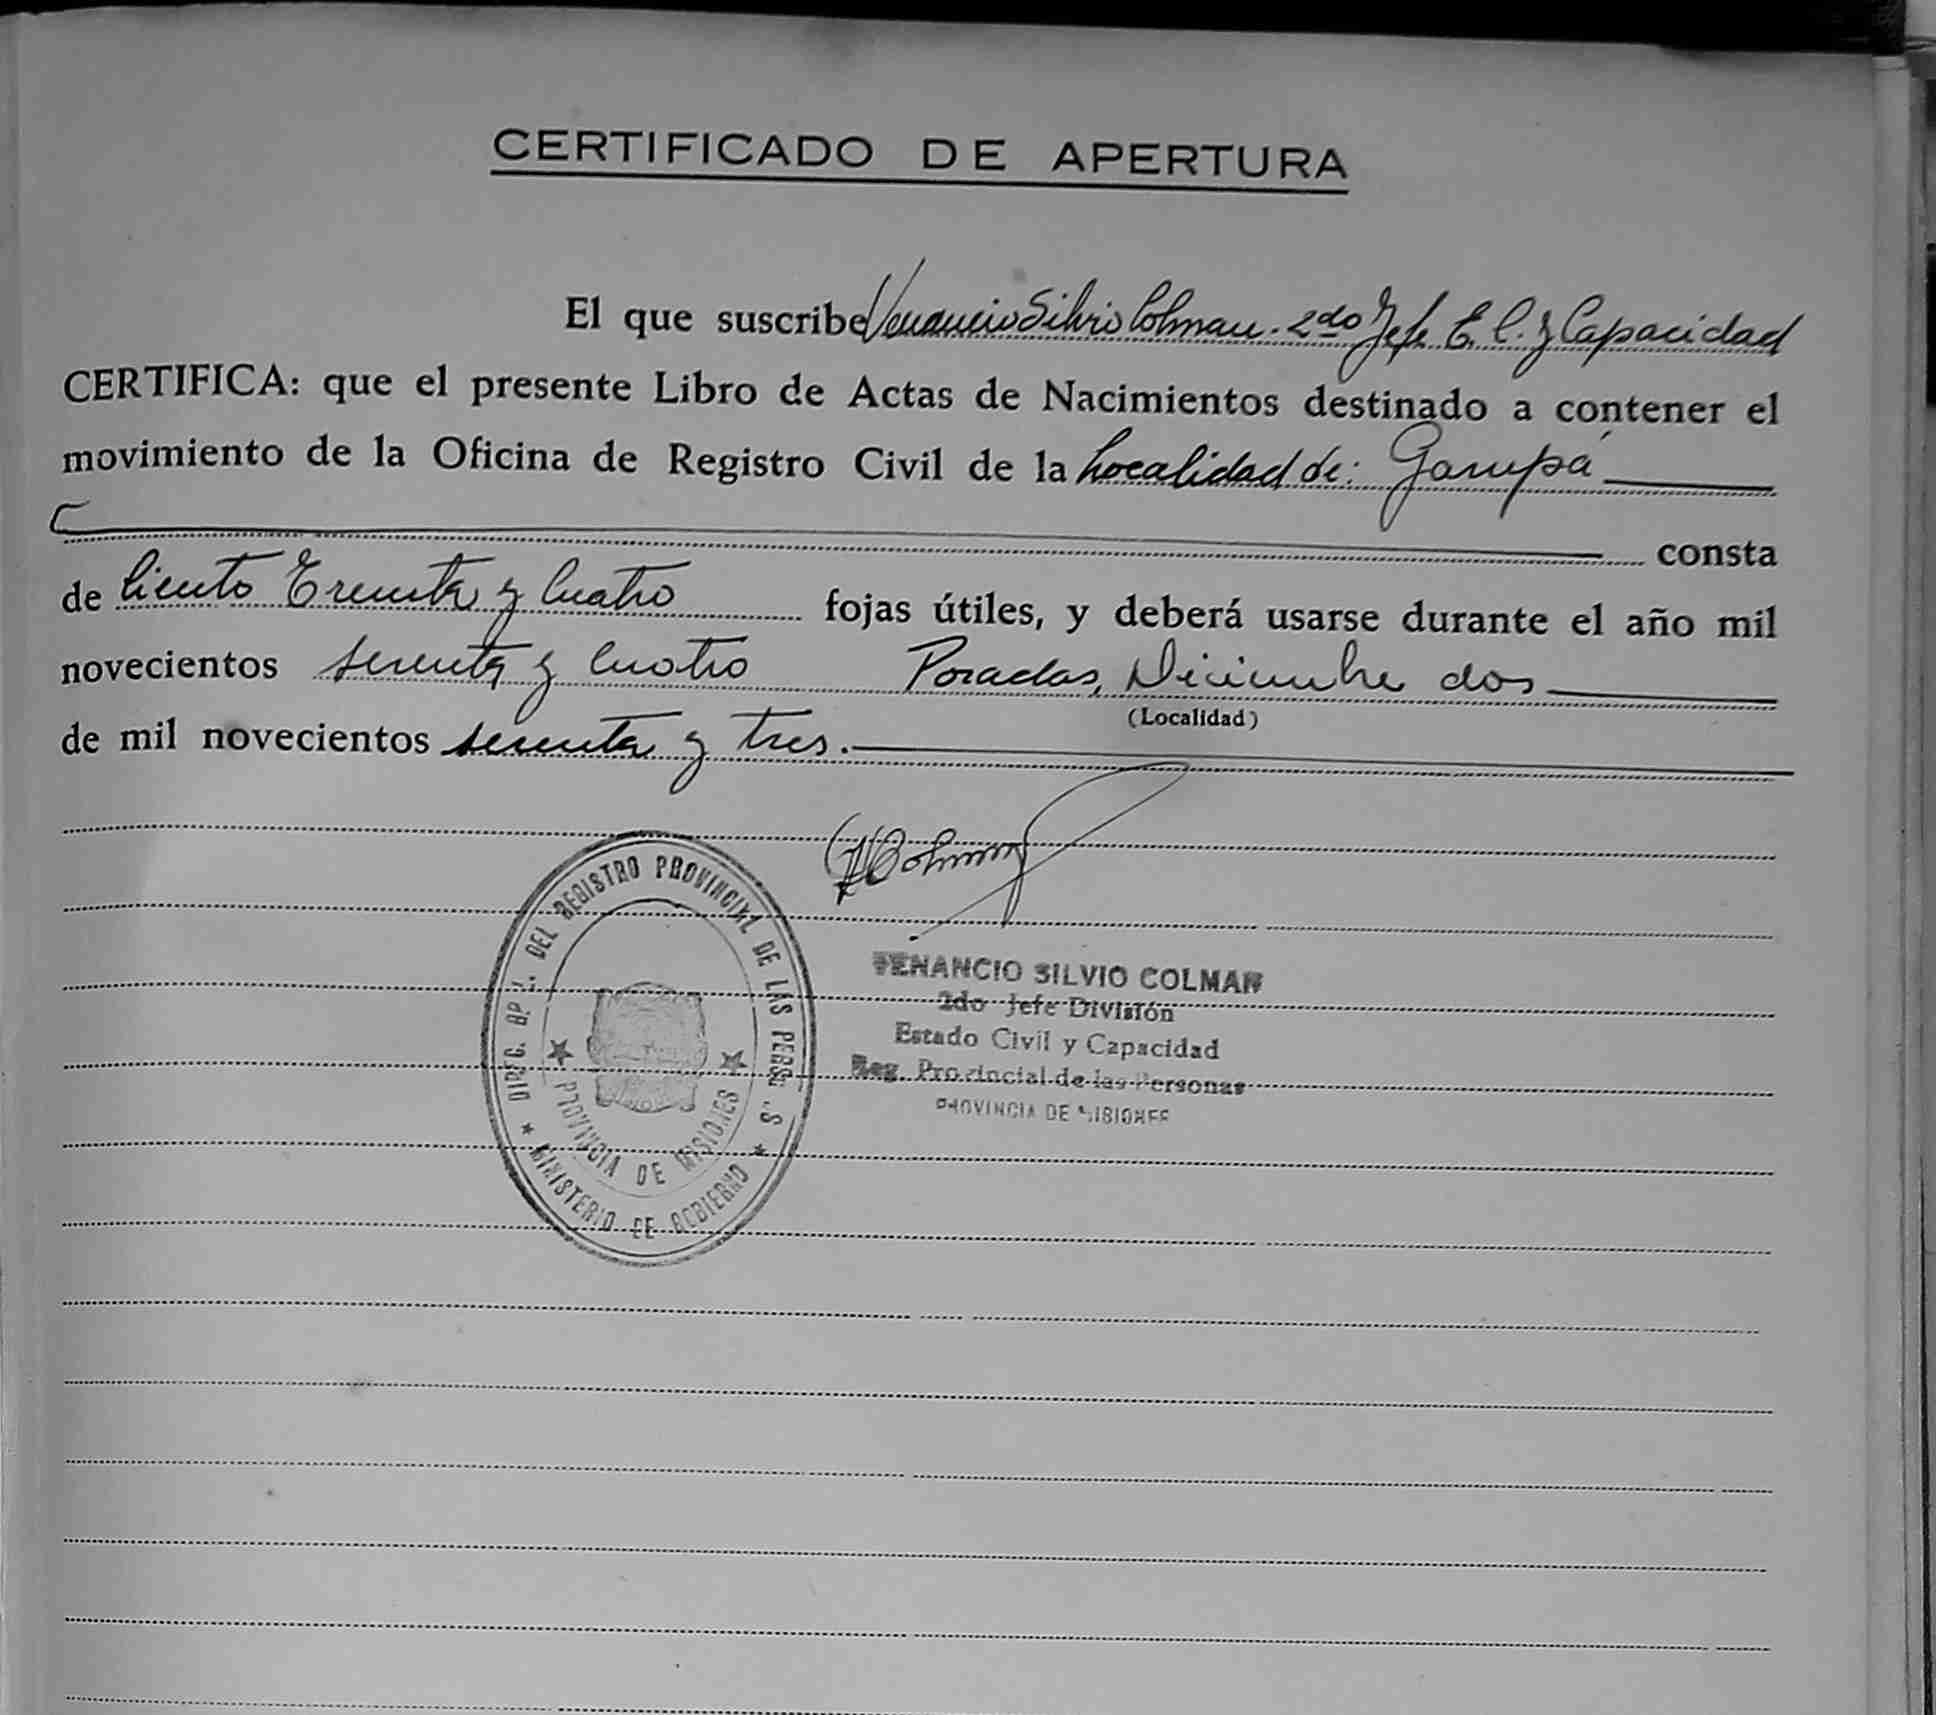 CERTIFICADO DE APERTURA
El que suscribe Venancio Silvio Colman. 2do Jefe E. C. y Capacidad
CERTIFICA: que el presente Libro de Actas de Nacimientos destinado a contener el
movimiento de la Oficina de Registro Civil de la Localidad de: Garupá
consta
de Ciento Treinta y Cuatro fojas útiles, y deberá usarse durante el año mil
novecientos setenta y cuatro Posadas, Diciembre dos
(Localidad)
de mil novecientos setenta y tres.
Colman
VENANCIO SILVIO COLMAN
2do Jefe División
Estado Civil y Capacidad
Reg. Provincial de las Personas
PROVINCIA DE MISIONES
DEL REGISTRO PROVINCIAL DE LAS
PROVINCIA DE MISIONES
MINISTERIO DE GOBIERNO